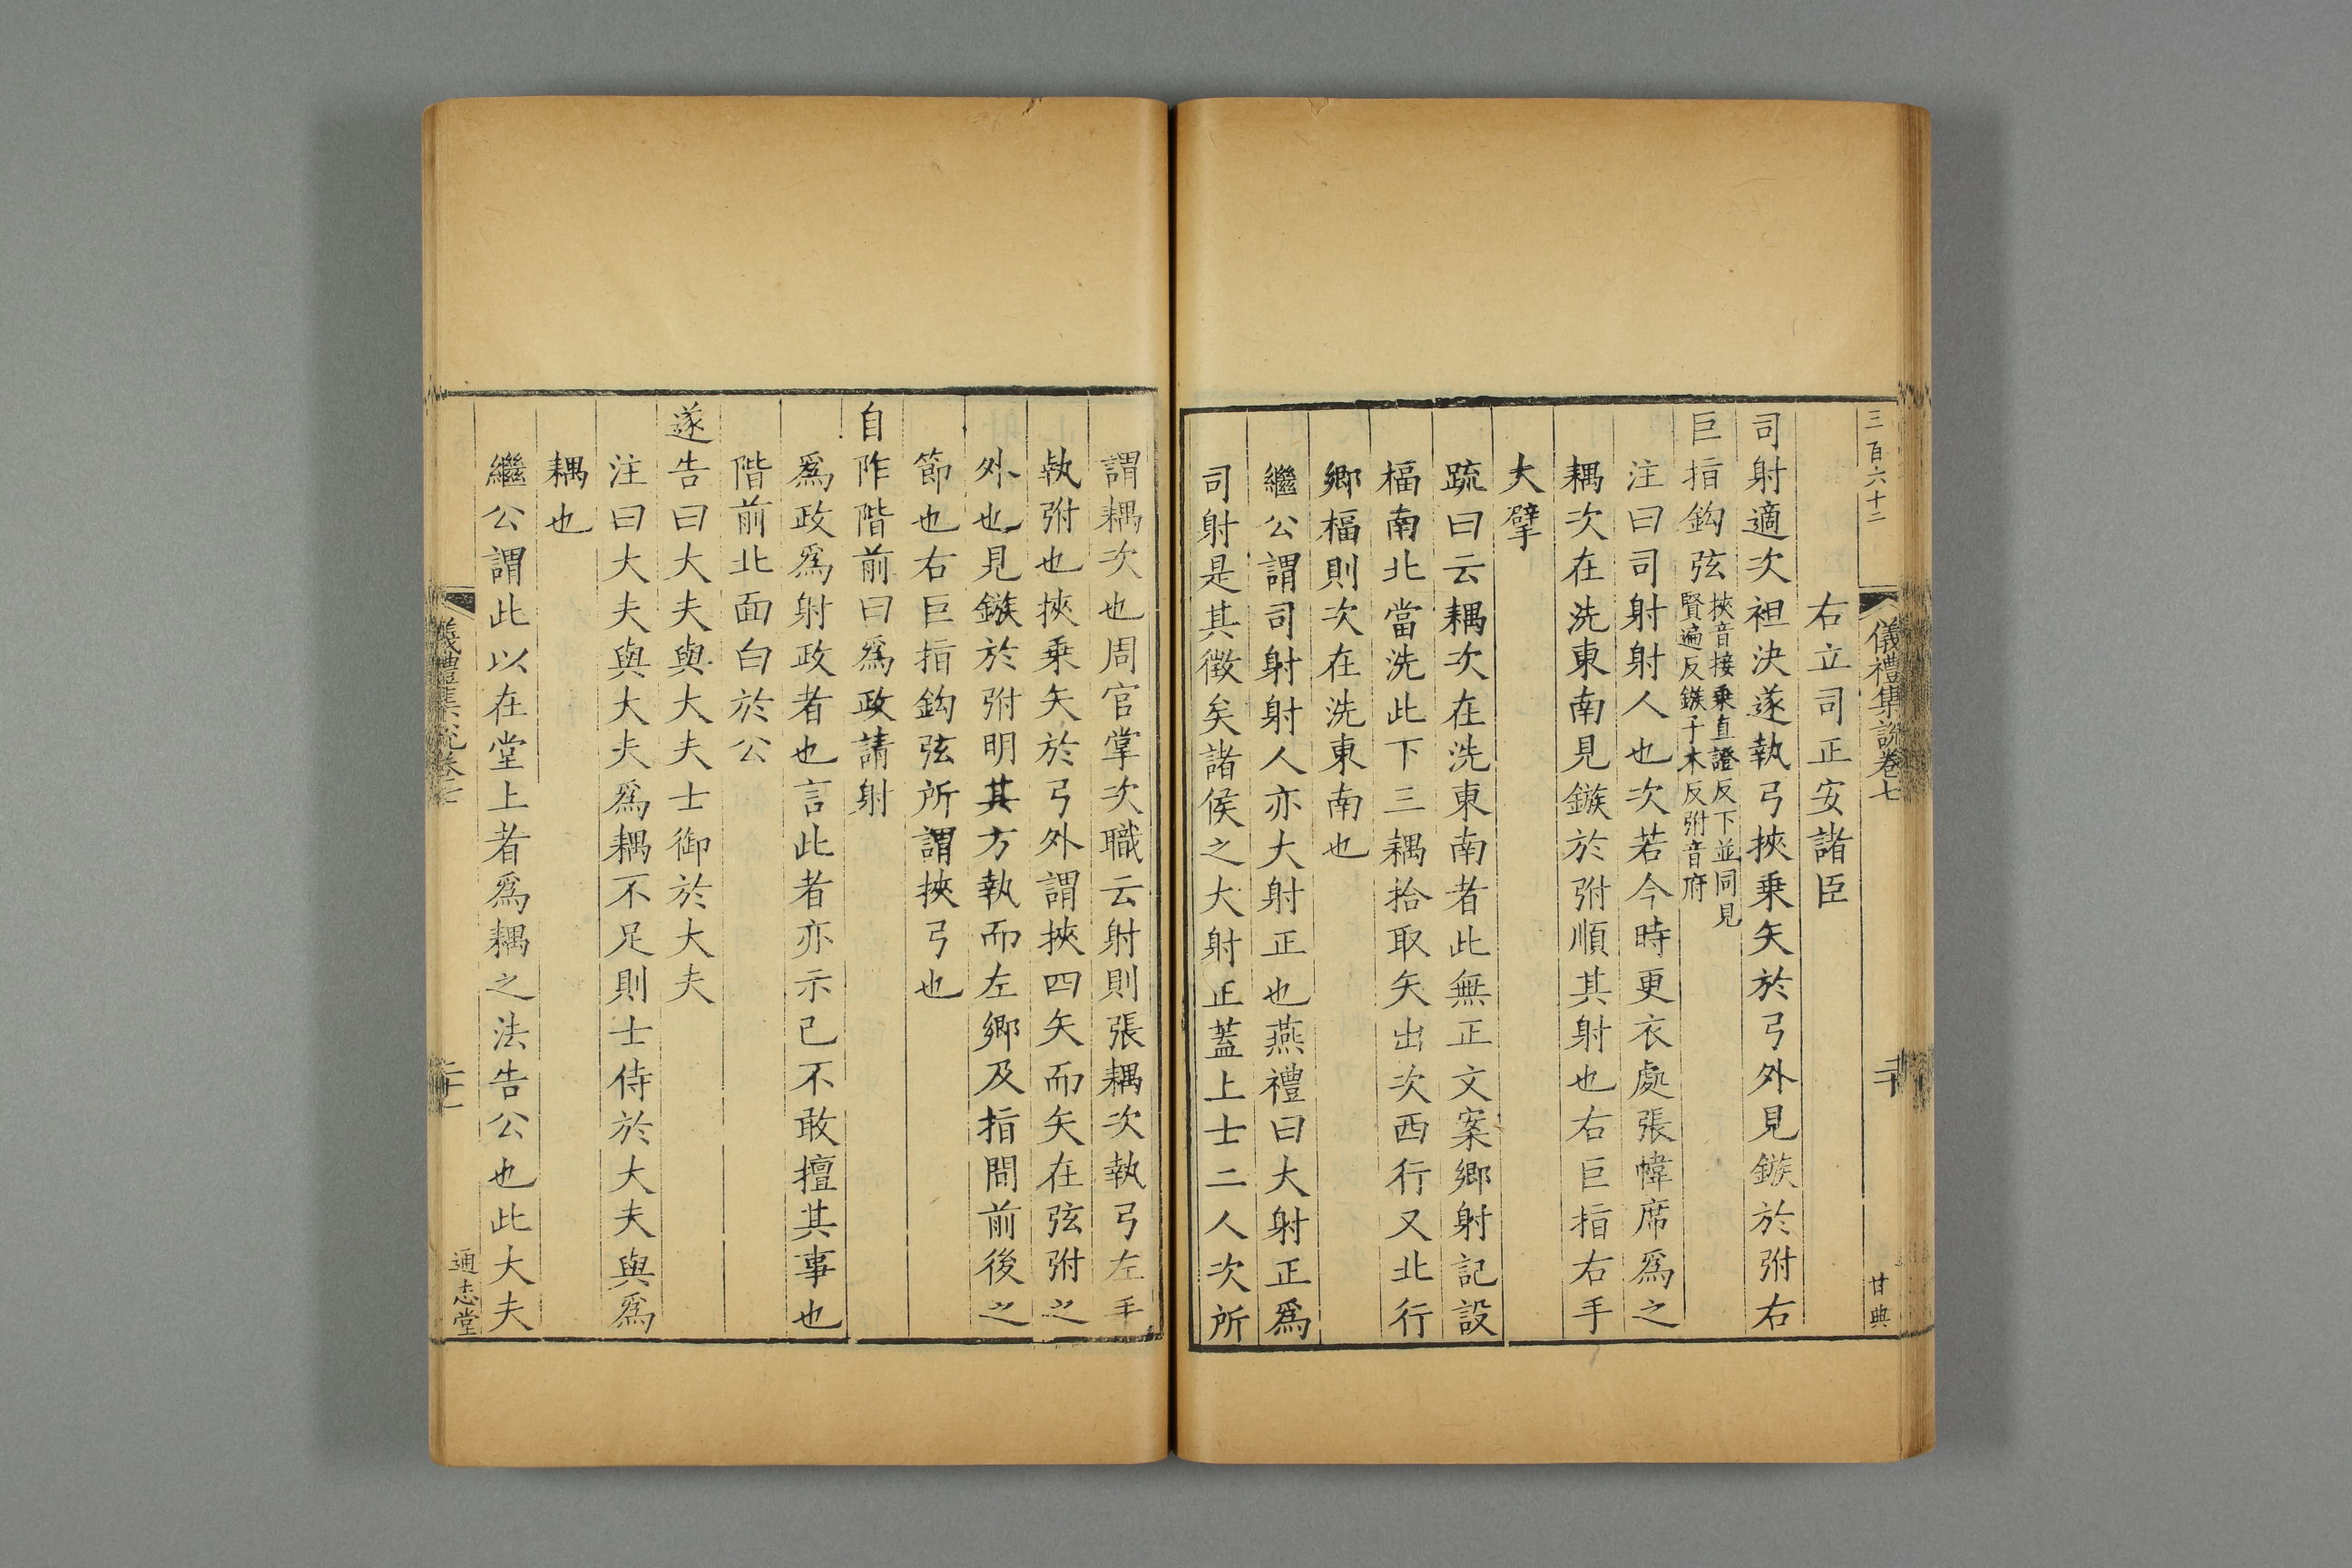 三百六十二
儀禮集說卷七
二十
甘典
右立司正安諸臣
司射適次袒決遂執弓挾乗矢於弓外見鏃於弣右
巨指鈎弦
挾音接乗直證反下並同見
賢遍反鏃子木反弣音府
注曰司射射人也次若今時更衣處張幃席爲之
耦次在洗東南見鏃於弣順其射也右巨指右手
大擘
疏曰云耦次在洗東南者此無正文案鄉射記設
楅南北當洗此下三耦拾取矢出次西行又北行
鄉楅則次在洗東南也
繼公謂司射射人亦大射正也燕禮曰大射正爲
司射是其徵矣諸侯之大射正蓋上士二人次所
謂耦次也周官掌次職云射則張耦次執弓左手
執弣也挾乗矢於弓外謂挾四矢而矢在弦弣之
外也見鏃於弣明其方執而左鄉及指間前後之
節也右巨指鈎弦所謂挾弓也
自阼階前曰爲政請射
爲政爲射政者也言此者亦示己不敢擅其事也
階前北面白於公
遂告曰大夫與大夫士御於大夫
注曰大夫與大夫爲耦不足則士侍於大夫與爲
耦也
繼公謂此以在堂上者爲耦之法告公也此大夫
儀禮集說卷七
二十一
通志堂